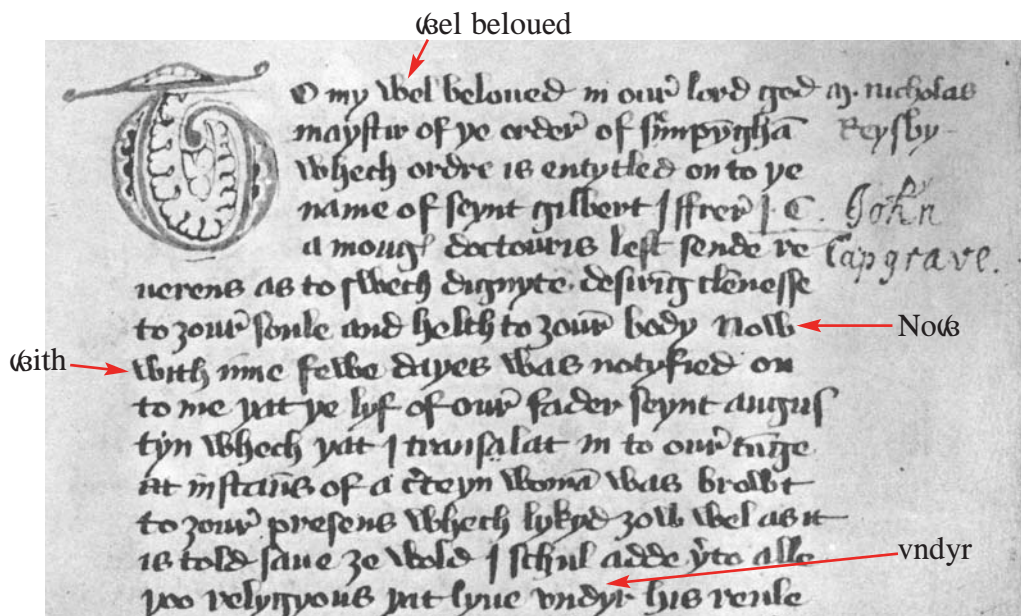 ꟃel beloued
TO my wel beloued in our̉ lord god M. Nicholas
maystir of ye order̉ of Sempynghā Reysby
whech ordre is entytled on to ye
name of seynt gilbert I ffrer̉ I. C. John
a mong doctouris left sende re Capgrave.
uerens as to swech dignyte. desiring clennesse
to ȝour̉ soule and helth to ȝour̉ body Now
Noꟃ
ꟃith
with inne fewe dayes was notyfied on
to me yat ye lyf of our̉ fader seynt augus
tyn whech yat I translat in to our̉ tunge
at instaūs of a c̉teyn womā was browt
to ȝour̉ presens whech lykyd ȝow wel as it
is told saue ȝe wold I schul adde ẏto alle
vndyr
yoo relygyous yat lyue vndyr his reule